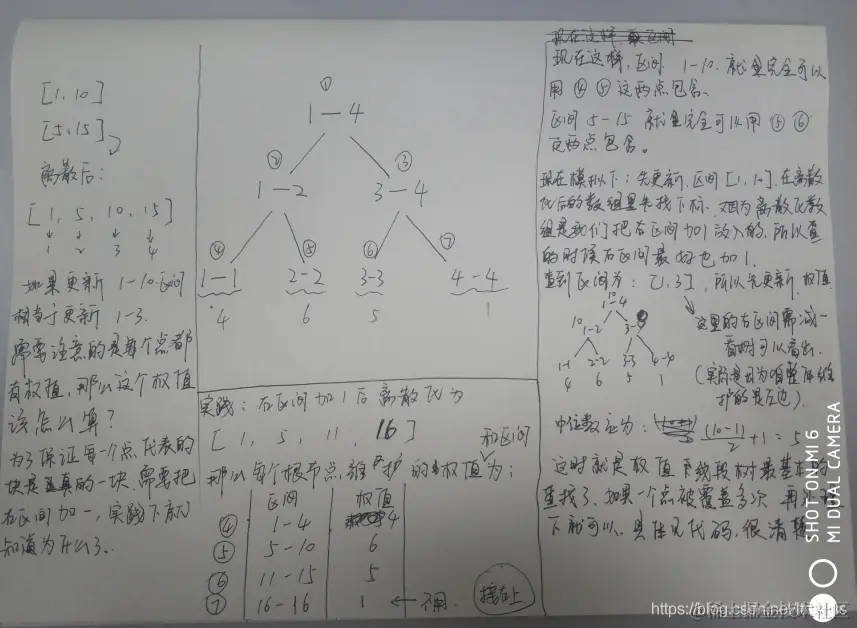 [1,10]
[5,15]
离散后:
[1, 5, 10, 15]
1 2 3 4
如果更新 1-10区间
相当于更新 1-3.
需要注意的是每个点都
有权值,那么这个权值
该怎么算?
为了保证每一个点代表的
块是真的一块,需要把
右区间加一,实践下就
知道为什么了.
①
1—4
② ③
1—2 3—4
④ ⑤ ⑥ ⑦
1—1 2-2 3-3 4-4
4 6 5 1
实践:右区间加1后离散化为
[1, 5, 11, 16]
和区间
那么每个根节点维护的权值为:
区间 权值
④ 1-4 4
⑤ 5-10 6
⑥ 11-15 5
⑦ 16-16 1 ← 不用.
接右上
现在这样,区间 1-10. 就是完全可以
用 ④ ⑤ 这两点包含、
区间 5-15 就是完全可以用 ⑤ ⑥
这两点包含。
现在模拟下:先更新,区间[1,10],在离散
化后的数组里先找下标、又因为离散化数
组是我们把右区间加1放入的,所以查
的时候右区间最好也加1.
查到区间为:[1,3],所以先更新 权值
10
1-4
10
1-2 3-
1-1 2-2 3-3 4-4
4 6 5 1
这里的右区间需减一
看树可以看出.
(实际是因为咱整体维
护的是左边).
中位数应为: (10-1)/2 + 1 = 5
这时就是权值下线段树最基本的
查找了、如果一个点被覆盖多次 再
下就可以、具体见代码,很清楚
SHOT ON MI 6
MI DUAL CAMERA
@稀土掘金技术社区